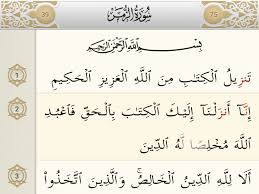 39 سُورَةُ الزُّمَرِ 75
بِسْمِ اللَّهِ الرَّحْمَٰنِ الرَّحِيمِ
1 تَنزِيلُ ٱلْكِتَٰبِ مِنَ ٱللَّهِ ٱلْعَزِيزِ ٱلْحَكِيمِ
2 إِنَّآ أَنزَلْنَآ إِلَيْكَ ٱلْكِتَٰبَ بِٱلْحَقِّ فَٱعْبُدِ
ٱللَّهَ مُخْلِصًا لَّهُ ٱلدِّينَ
3 أَلَا لِلَّهِ ٱلدِّينُ ٱلْخَالِصُ ۚ وَٱلَّذِينَ ٱتَّخَذُوا۟